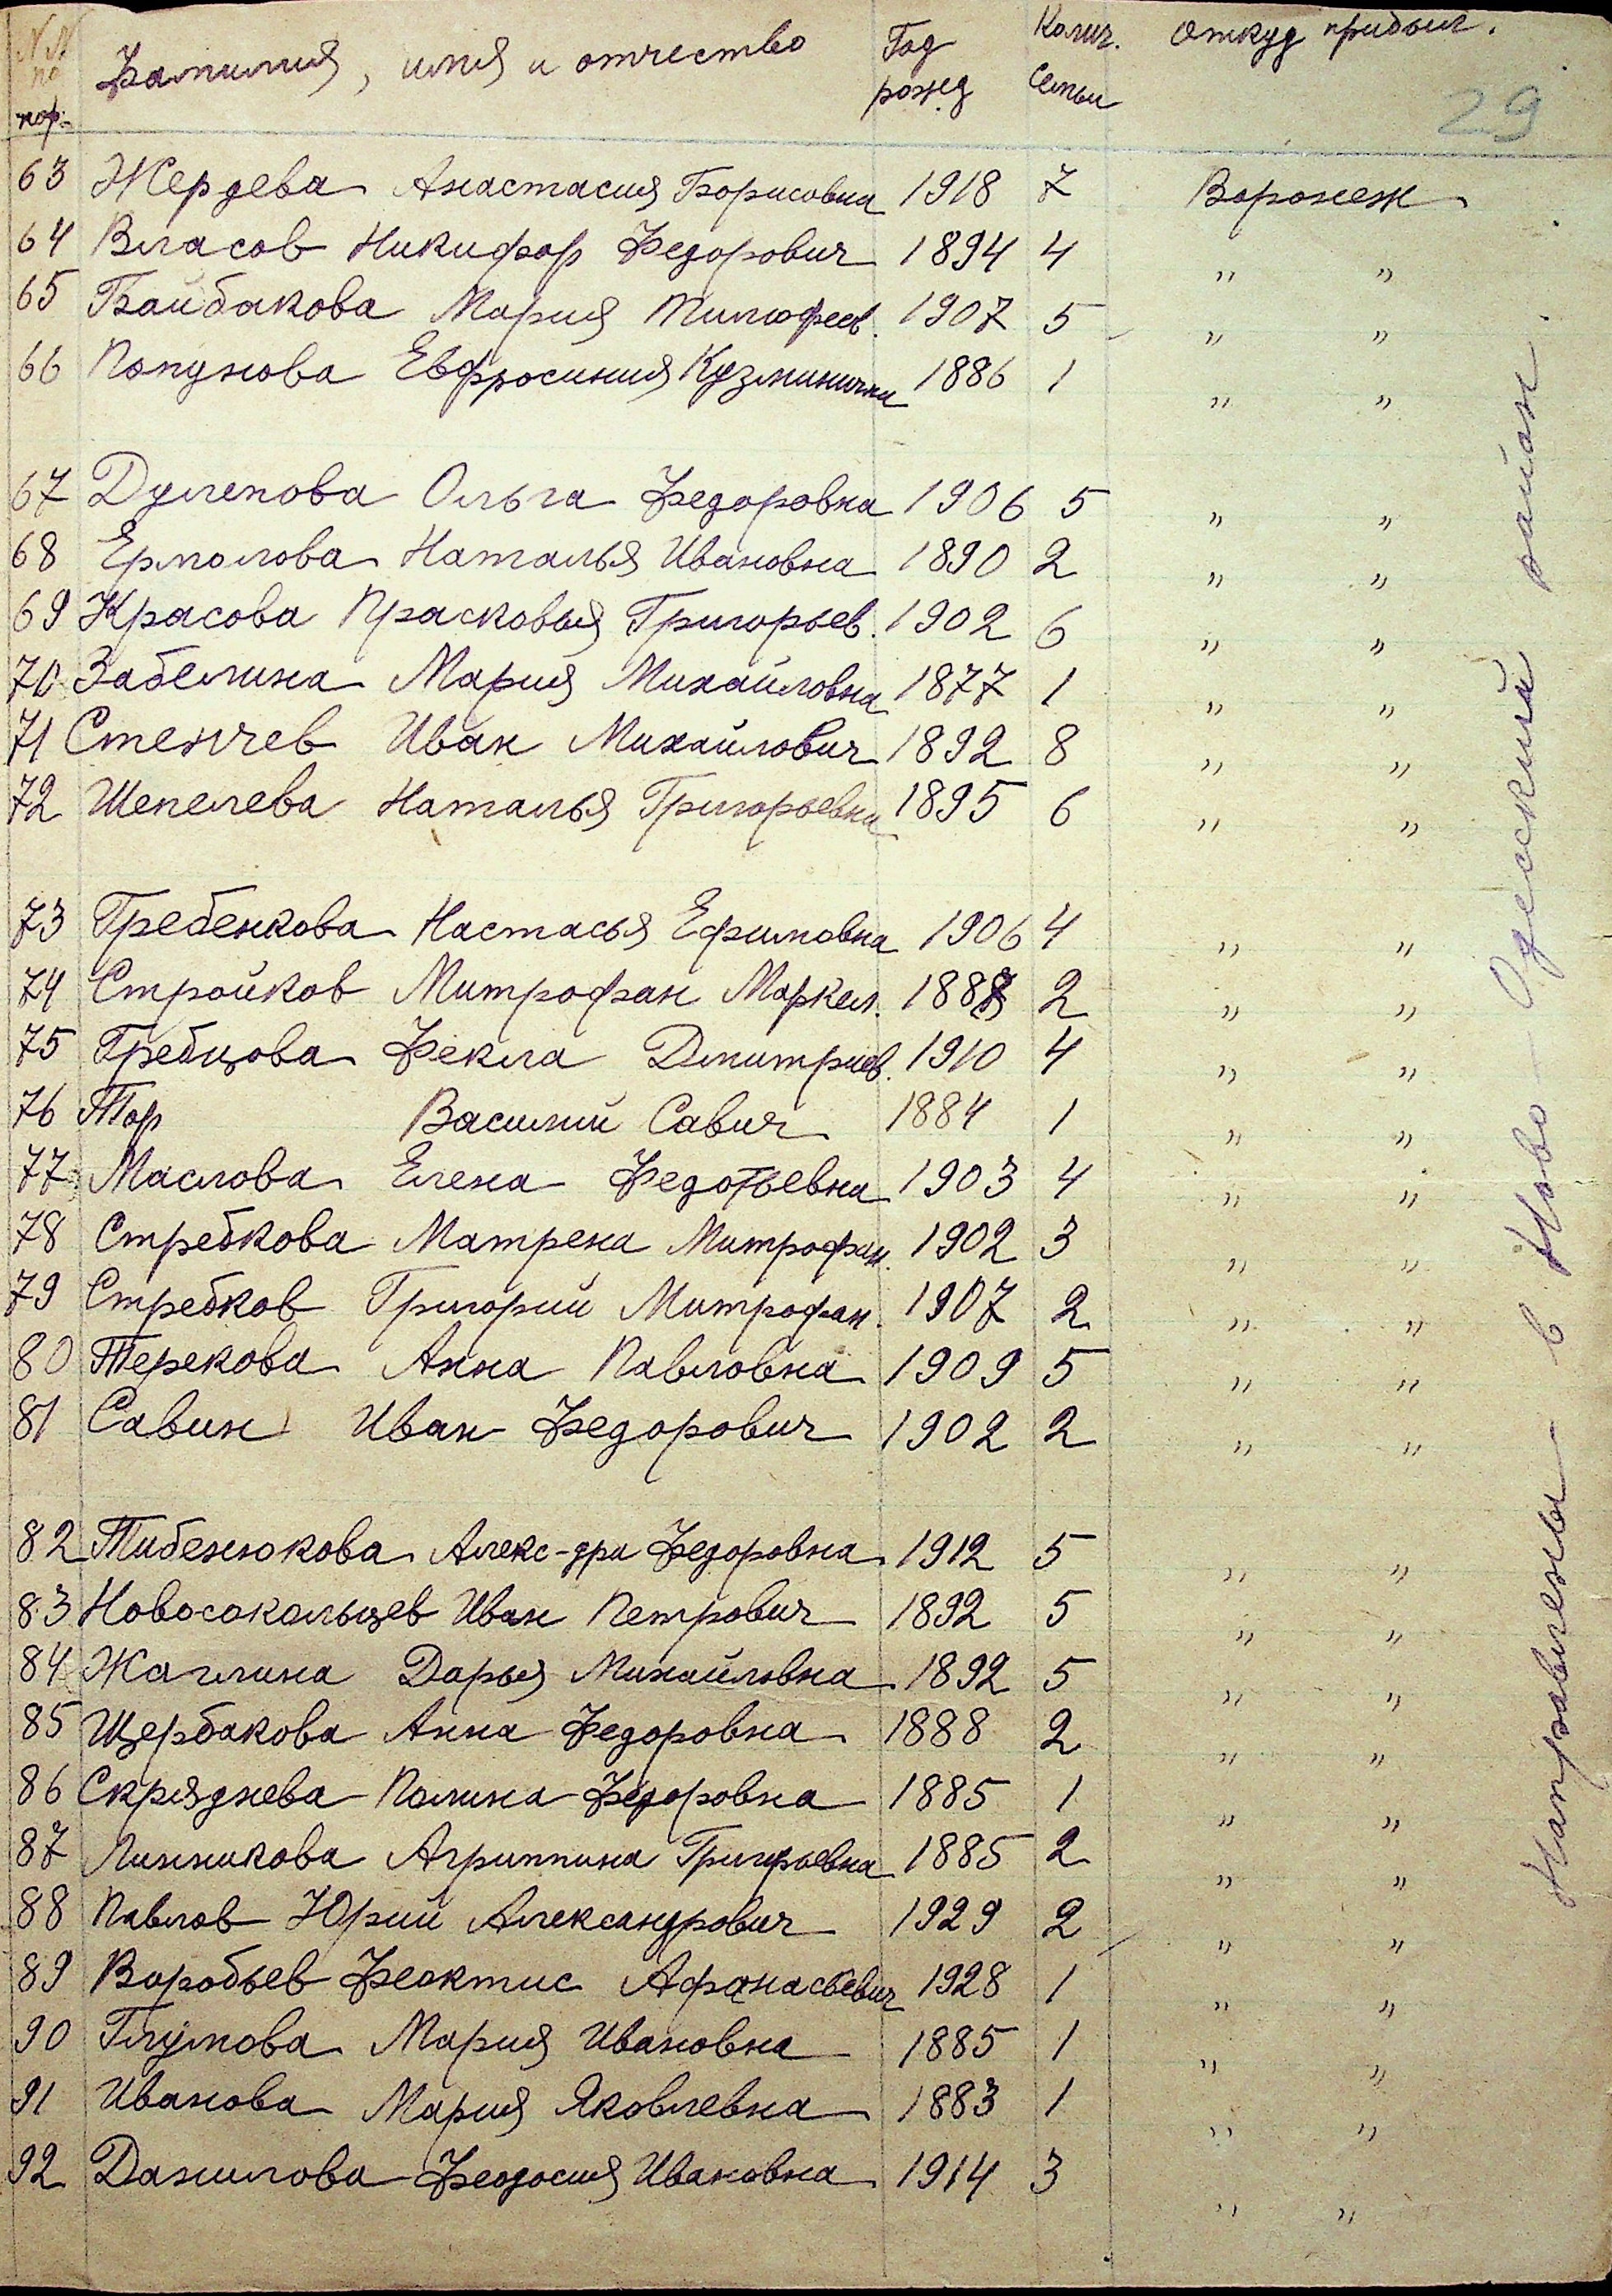 NN по пор. Фамилия, имя и отчество Год рожд Колич. семьи Откуд прибыл.
29
63 Жердева Анастасия Борисовна 1918 7 Воронеж
64 Власов Никифор Федорович 1894 4 " "
65 Байбакова Мария Тимофеев. 1907 5 " "
66 Попунова Евфросиния Кузминична 1886 1 " "
67 Дулепова Ольга Федоровна 1906 5 " "
68 Ермолова Наталья Ивановна 1890 2 " "
69 Красова Прасковья Григорьев. 1902 6 " "
70 Забелина Мария Михайловна 1877 1 " "
71 Стенчев Иван Михайлович 1892 8 " "
72 Шепелева Наталья Григорьевна 1895 6 " "
73 Гребенкова Настасья Ефимовна 1906 4 " "
74 Стройков Митрофан Маркел. 1888 2 " "
75 Гребцова Фекла Дмитриев. 1910 4 " "
76 Тор Василий Савич 1884 1 " "
77 Маслова Елена Федотьевна 1903 4 " "
78 Стребкова Матрена Митрофан. 1902 3 " "
79 Стребков Григорий Митрофан. 1907 2 " "
80 Терехова Анна Павловна 1909 5 " "
81 Савин Иван Федорович 1902 2 " "
82 Тибенюкова Алекс-дра Федоровна 1912 5 " "
83 Новосокальцев Иван Петрович 1892 5 " "
84 Жаглина Дарья Михайловна 1892 5 " "
85 Щербакова Анна Федоровна 1888 2 " "
86 Скряднева Полина Федоровна 1885 1 " "
87 Линникова Агриппина Григорьевна 1885 2 " "
88 Павлов Юрий Александрович 1929 2 " "
89 Воробьев Феоктис Афанасьевич 1928 1 " "
90 Глумова Мария Ивановна 1885 1 " "
91 Иванова Мария Яковлевна 1883 1 " "
92 Данилова Феодосия Ивановна 1914 3 " "
Направлены в Ново-Одесский район.